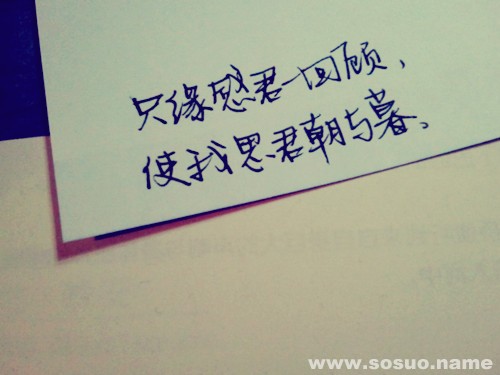 只缘感君一回顾，
使我思君朝与暮。
www.sosuo.name